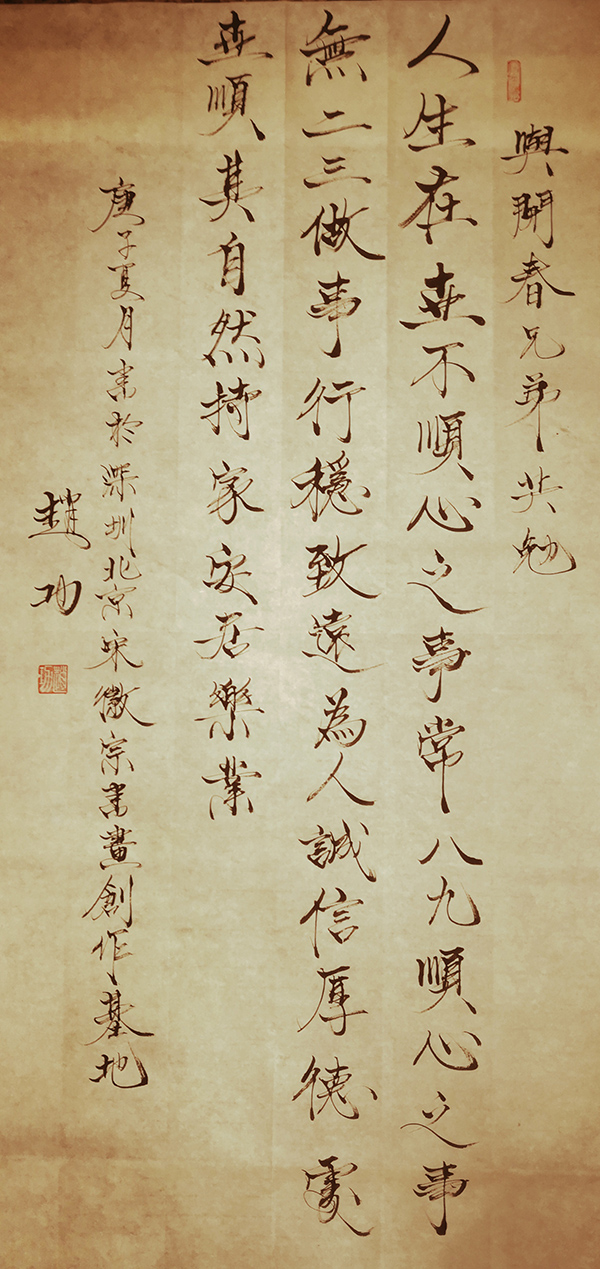 與開春兄弟共勉
人生在世不順心之事常八九順心之事
無二三做事行穩致遠為人誠信厚德處
世順其自然持家安居樂業
庚子夏月書於深圳北京宋徽宗書畫創作基地
趙功